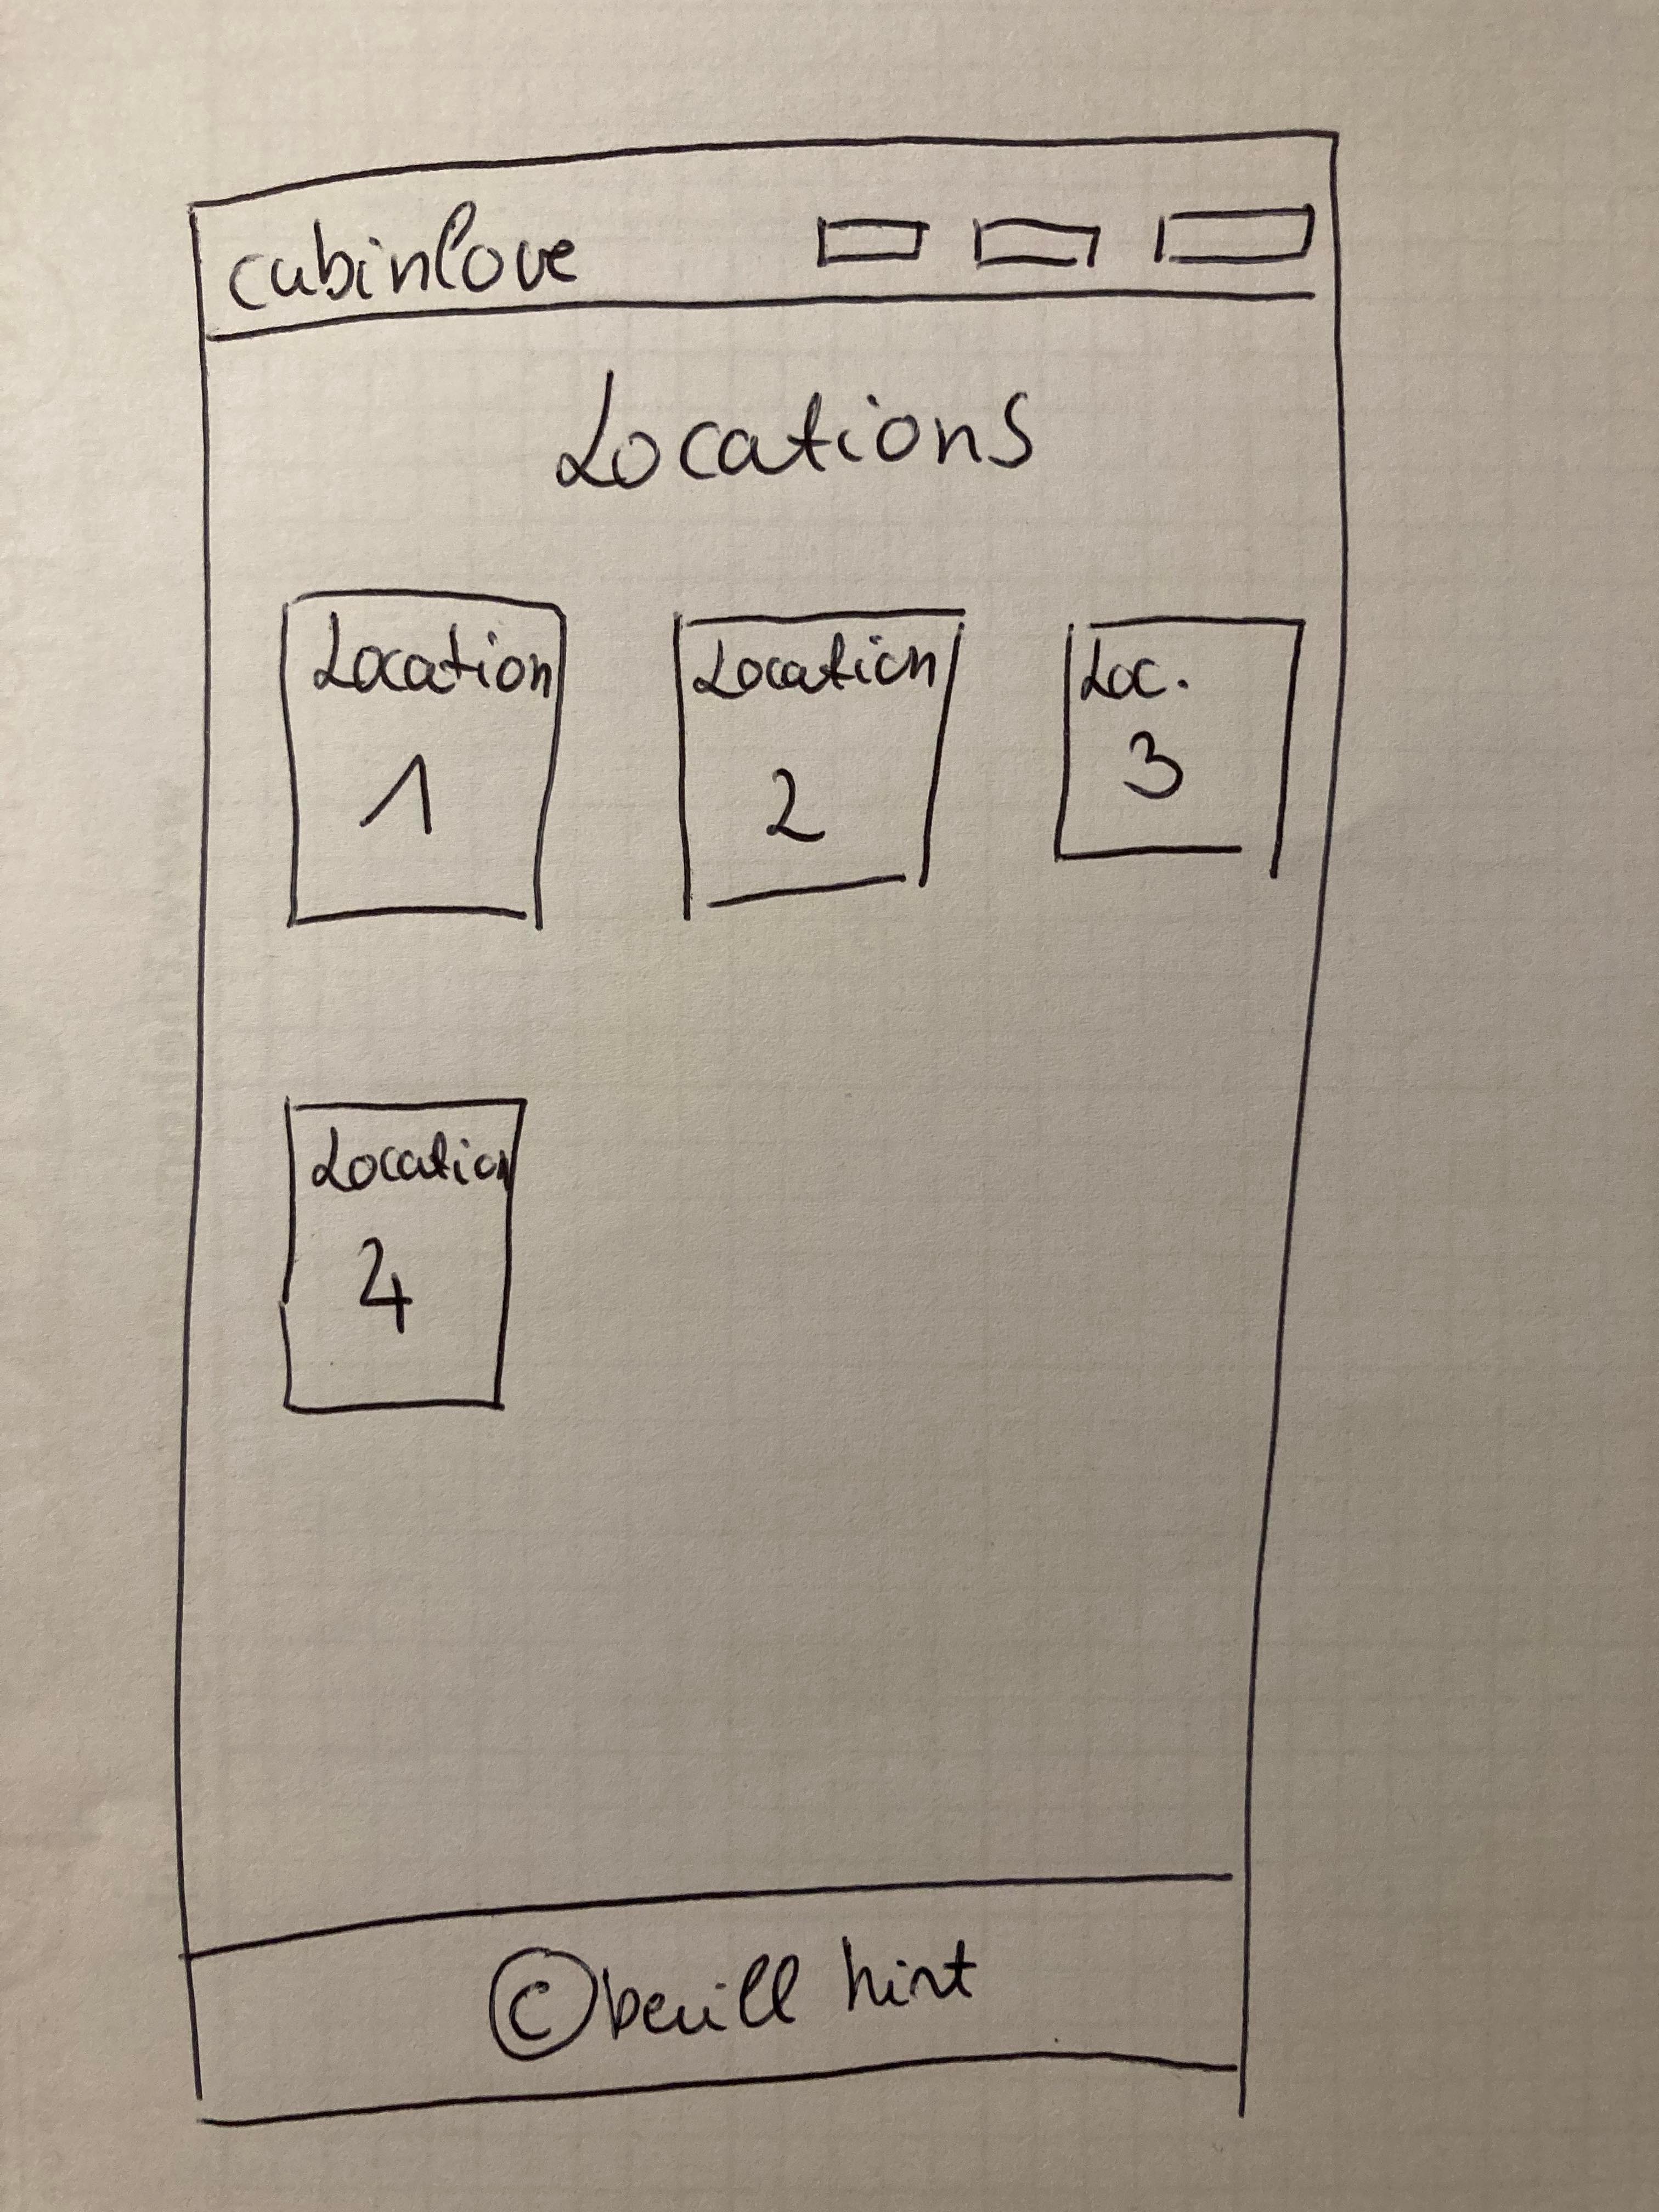 cubinlove
Locations
Location
1
Location
2
Loc.
3
Location
4
©